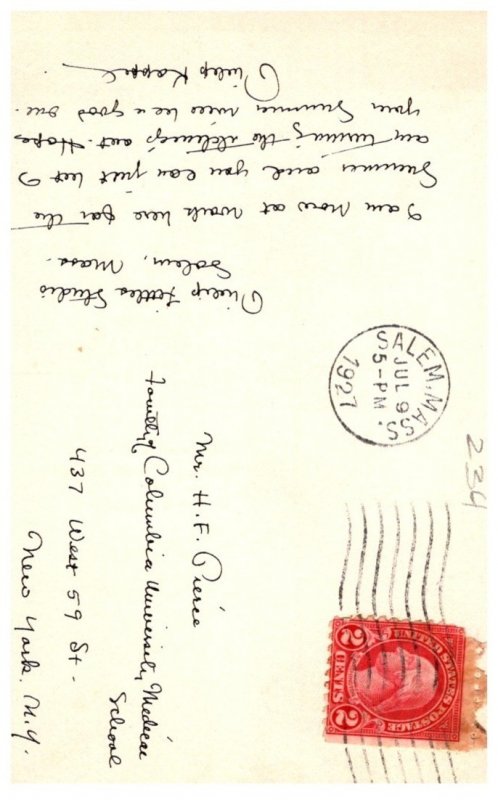 Philip Littles Studio
Salem, Mass.
I am now at work here for the
Summer and you can just bet I
am turning the etchings out. Hope
your Summer will be a good one.
Philip Kappel
SALEM, MASS.
JUL 9
5-PM
1927
234
UNITED STATES POSTAGE
2 CENTS 2
Mr. H. F. Pierce
Faculty of Columbia University, Medical
School
437 West 59 St.
New York, N.Y.